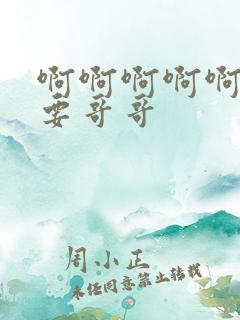 啊啊啊啊啊
要哥哥
周小正
未经同意禁止转载